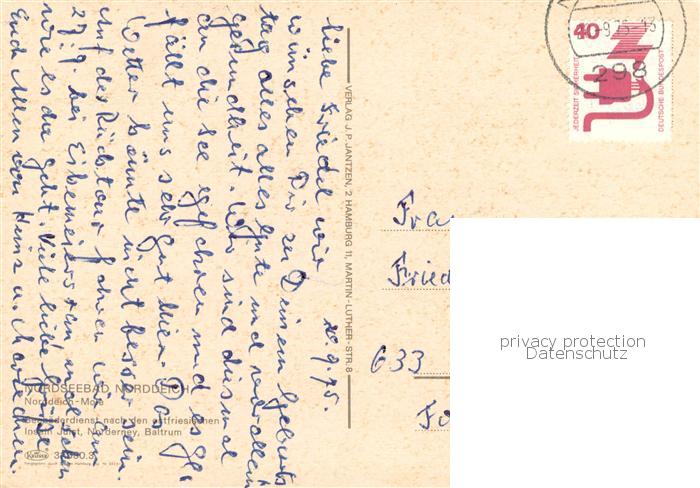 20.9.75.
Liebe Friedel wir
wünschen Dir zu Deinem Geburts
tag alles alles Gute und vor allem
Gesundheit. Wir sind diesmal
an die See gefahren und es ge
fällt uns sehr gut hier. Das
Wetter könnte nicht besser sein.
Auf der Rückstour fahren wir am
27.9. bei Eibemeiers ran und sehen
wie es da geht. Viele liebe Grüße
Euch Allen von Heinz u. Mariechen.
VERLAG J. P. JANTZEN, 2 HAMBURG 11, MARTIN-LUTHER-STR. 8
NORDSEEBAD NORDDEICH
Norddeich-Mole
nach den ostfriesischen
Inseln Juist, Norderney, Baltrum
Krüger
40
JEDERZEIT SICHERHEIT
DEUTSCHE BUNDESPOST
298
Frau
Fried
633
privacy protection
Datenschutz